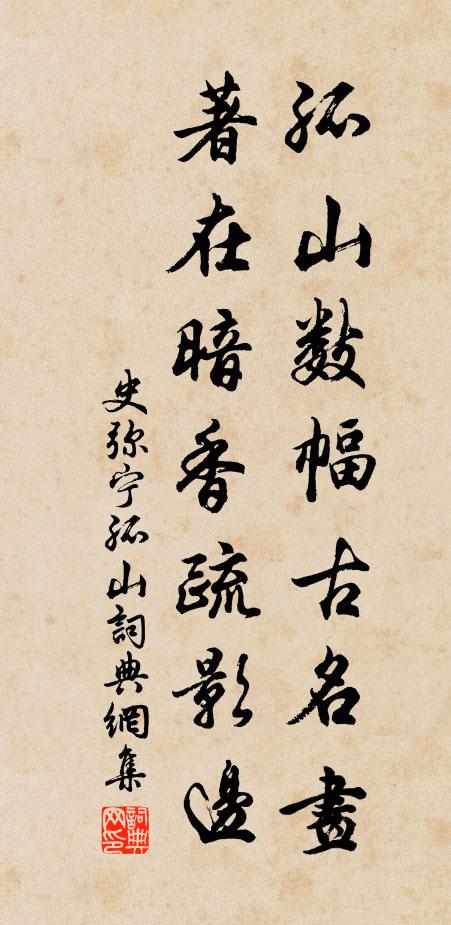 孤山数幅古名畫
著在暗香疏影邊
史弥宁孤山詞典網集
詞典网印